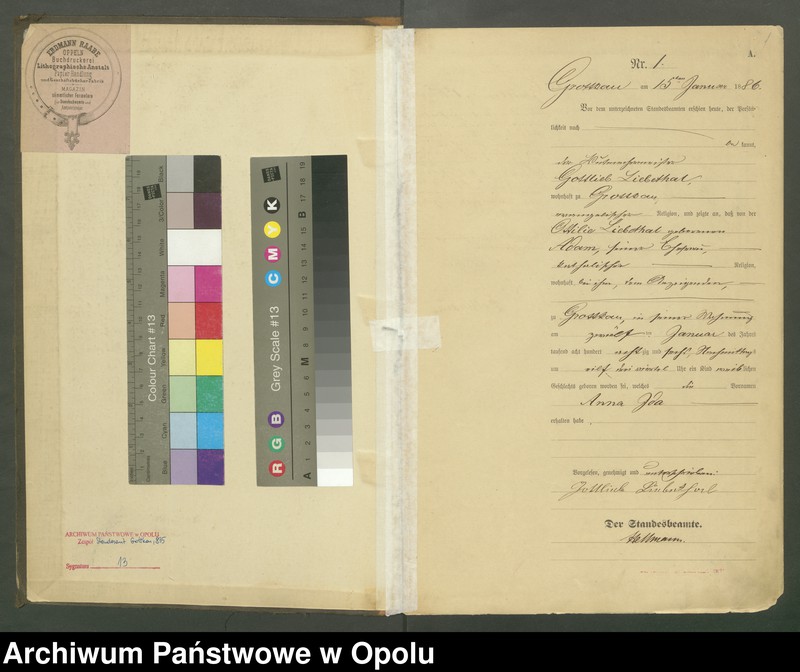 ERDMANN RAABE
OPPELN
Buchdruckerei
Lithographische Anstalt
Papier Handlung
MAGAZIN
ARCHIWUM PAŃSTWOWE w OPOLU
Zespół
Sygnatura 13
Colour Chart #13
Blue
Cyan
Green
Yellow
Red
Magenta
White
3/Color
Black
Grey Scale #13
R G B C M Y K
A 1 2 3 4 5 6 M 8 9 10 11 12 13 14 15 B 17 18 19
A.
Nr. 1.
Grossau am 15ten Januar 1886.
Vor dem unterzeichneten Standesbeamten erschien heute, der Persön-
lichkeit nach
kannt,
der
Gottlieb Liebethal,
wohnhaft zu Grossau,
evangelischer Religion, und zeigte an, daß von der
Ottilie Liebethal geborenen
Adam, seiner Ehefrau,
katholischer Religion,
wohnhaft bei ihm, dem Anzeigenden,
zu Grossau, in seiner Wohnung
am zwölften Januar des Jahres
tausend acht hundert achtzig und sechs, Nachmittags
um Uhr ein Kind weiblichen
Geschlechts geboren worden sei, welches die Vornamen
Anna Ida
erhalten habe
Vorgelesen, genehmigt und unterschrieben
Gottlieb Liebethal
Der Standesbeamte.
Archiwum Państwowe w Opolu